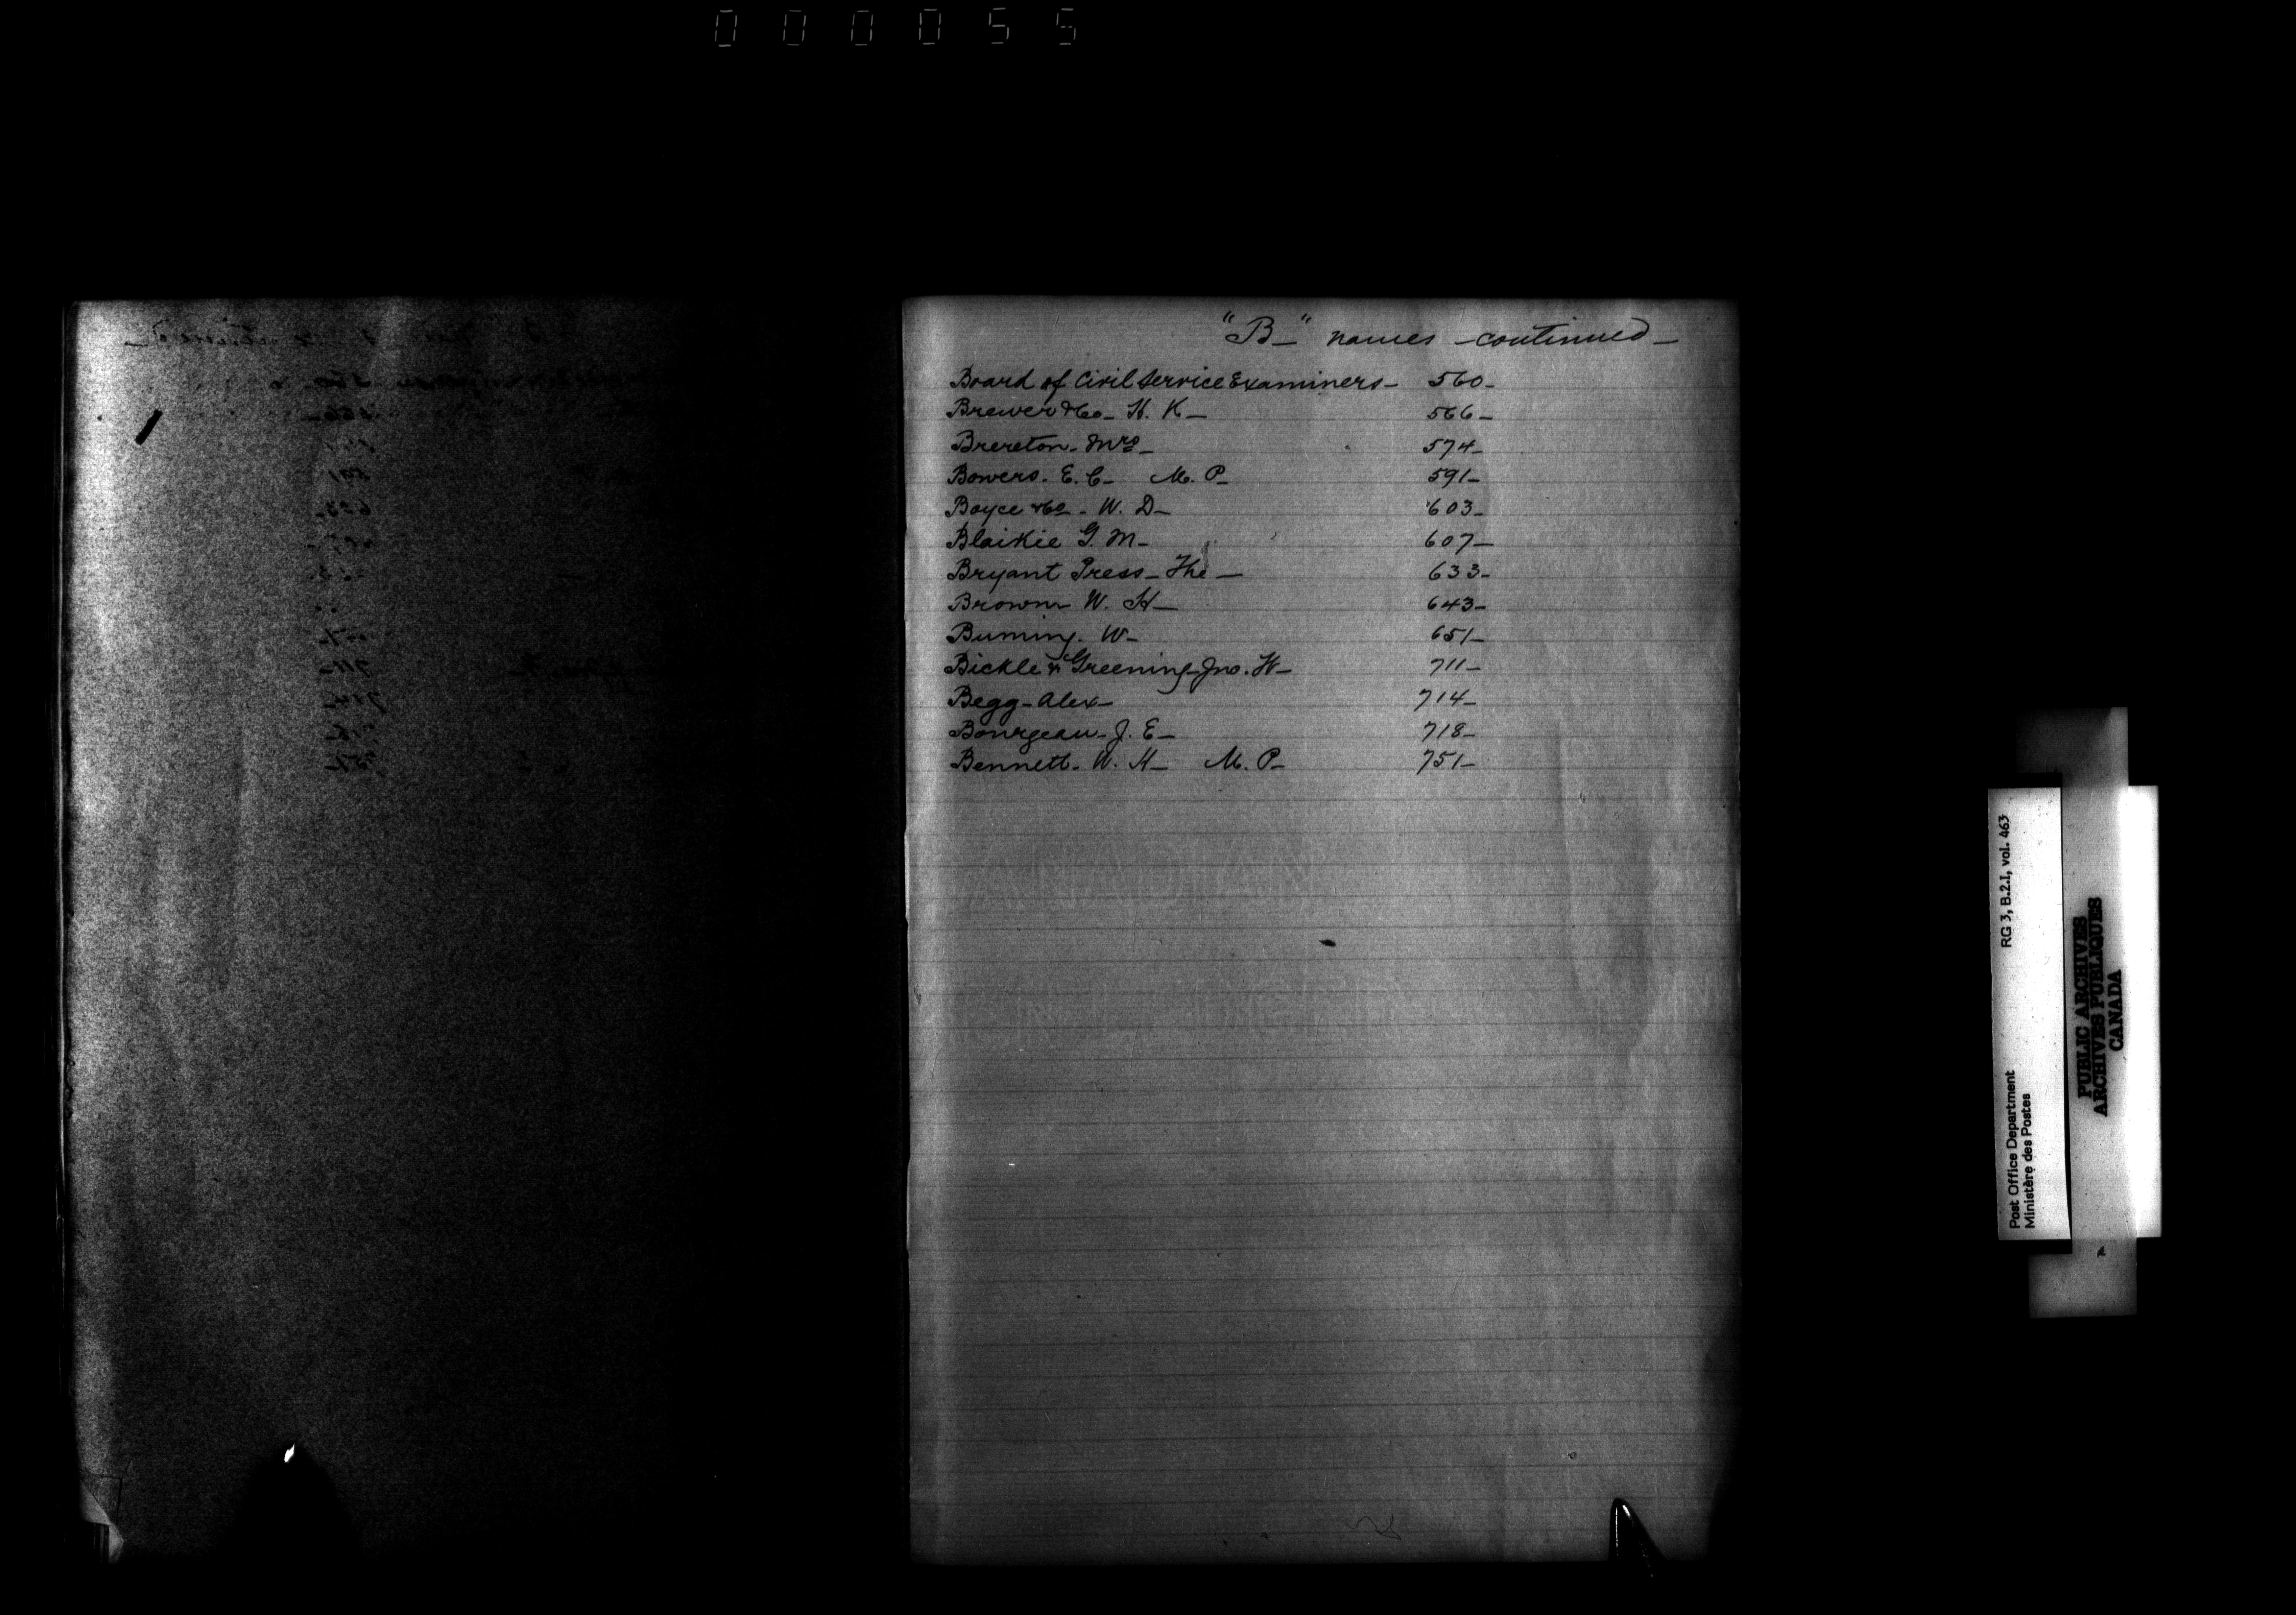 000055
"B" names - continued -
Board of Civil Service Examiners - 560 -
Brewer & Co - H. K - 566 -
Brereton - Mrs - 574 -
Bowers - E. C - M. P - 591 -
Boyce & Co - W. D - 603 -
Blaikie G. M - 607 -
Bryant Press - The - 633 -
Brown W. H - 643 -
W - 651 -
Bickle & Greening - Jno. W - 711 -
Begg - Alex - 714 -
Bourgeau - J. E - 718 -
Bennett - W. H - M. P - 751 -
Post Office Department RG 3, B.2.I, vol. 463
Ministère des Postes
PUBLIC ARCHIVES
ARCHIVES PUBLIQUES
CANADA